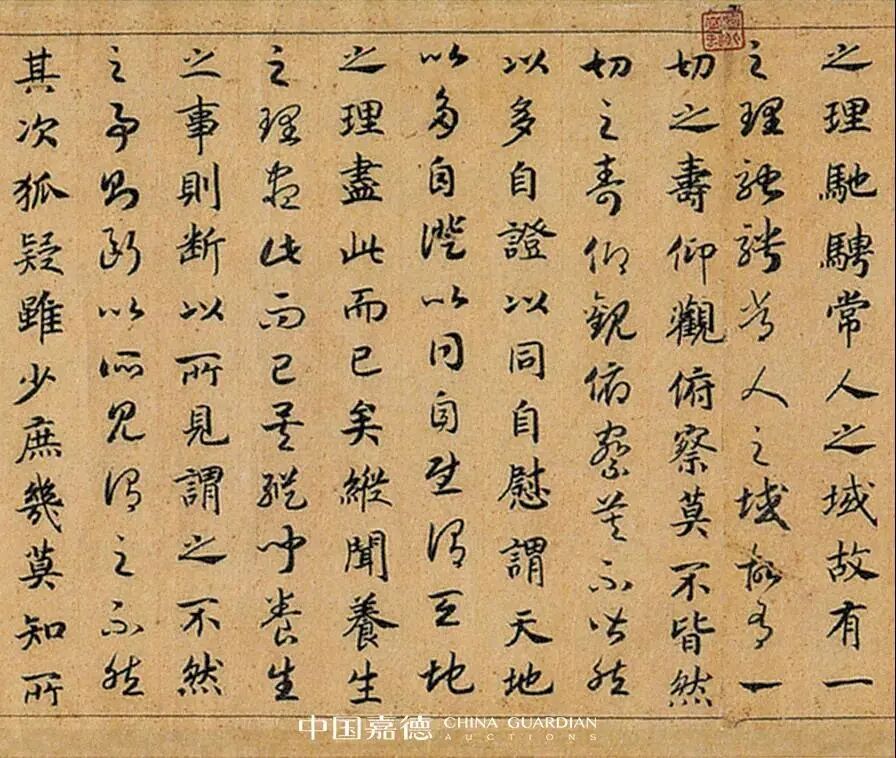 之理馳騁常人之域故有一
之理馳騁常人之域故有一
切之壽仰觀俯察莫不皆然
切之壽仰觀俯察莫不皆然
以多自證以同自慰謂天地
以多自證以同自慰謂天地
之理盡此而已矣縱聞養生
之理盡此而已矣縱聞養生
之事則断以所見謂之不然
之事則断以所見謂之不然
其次狐疑雖少庶幾莫知所
中国嘉德 CHINA GUARDIAN
AUCTIONS